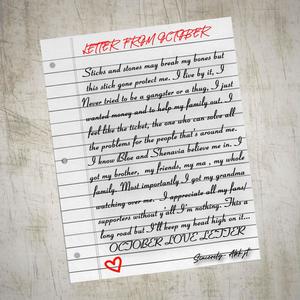 LETTER FROM OCTOBER
Sticks and stones may break my bones but
this stick gone protect me. I live by it, I
Never tried to be a gangster or a thug, I just
wanted money and to help my family out. I
feel like the ticket, the one who can solve all
the problems for the people that's around me.
I know Blue and Shenavia believe me in. I
got my brother, my friends, my ma, my whole
family. Most importantly I got my grandma
watching over me. I appreciate all my fans/
supporters without y'all I'm nothing. This a
long road but I'll keep my head high on it...
OCTOBER LOVE LETTER
Sincerely,